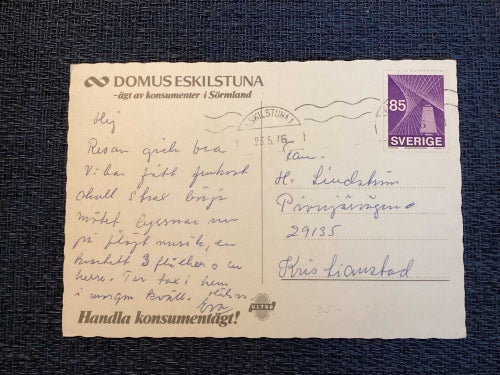 DOMUS ESKILSTUNA
-ägt av konsumenter i Sörmland
Hej
Resan gick bra
Vi har fått frukost
skall strax börja
mötet lyssnar nu
på musik, en
kvartett 3 flickor o en
herre. Tar taxi hem
i morgon kväll. Hälsn.
Eva
Handla konsumentägt!
ULTRA
ESKILSTUNA 1
23.5.76
85
SVERIGE
Fam.
H. Lindström
29135
Kristianstad